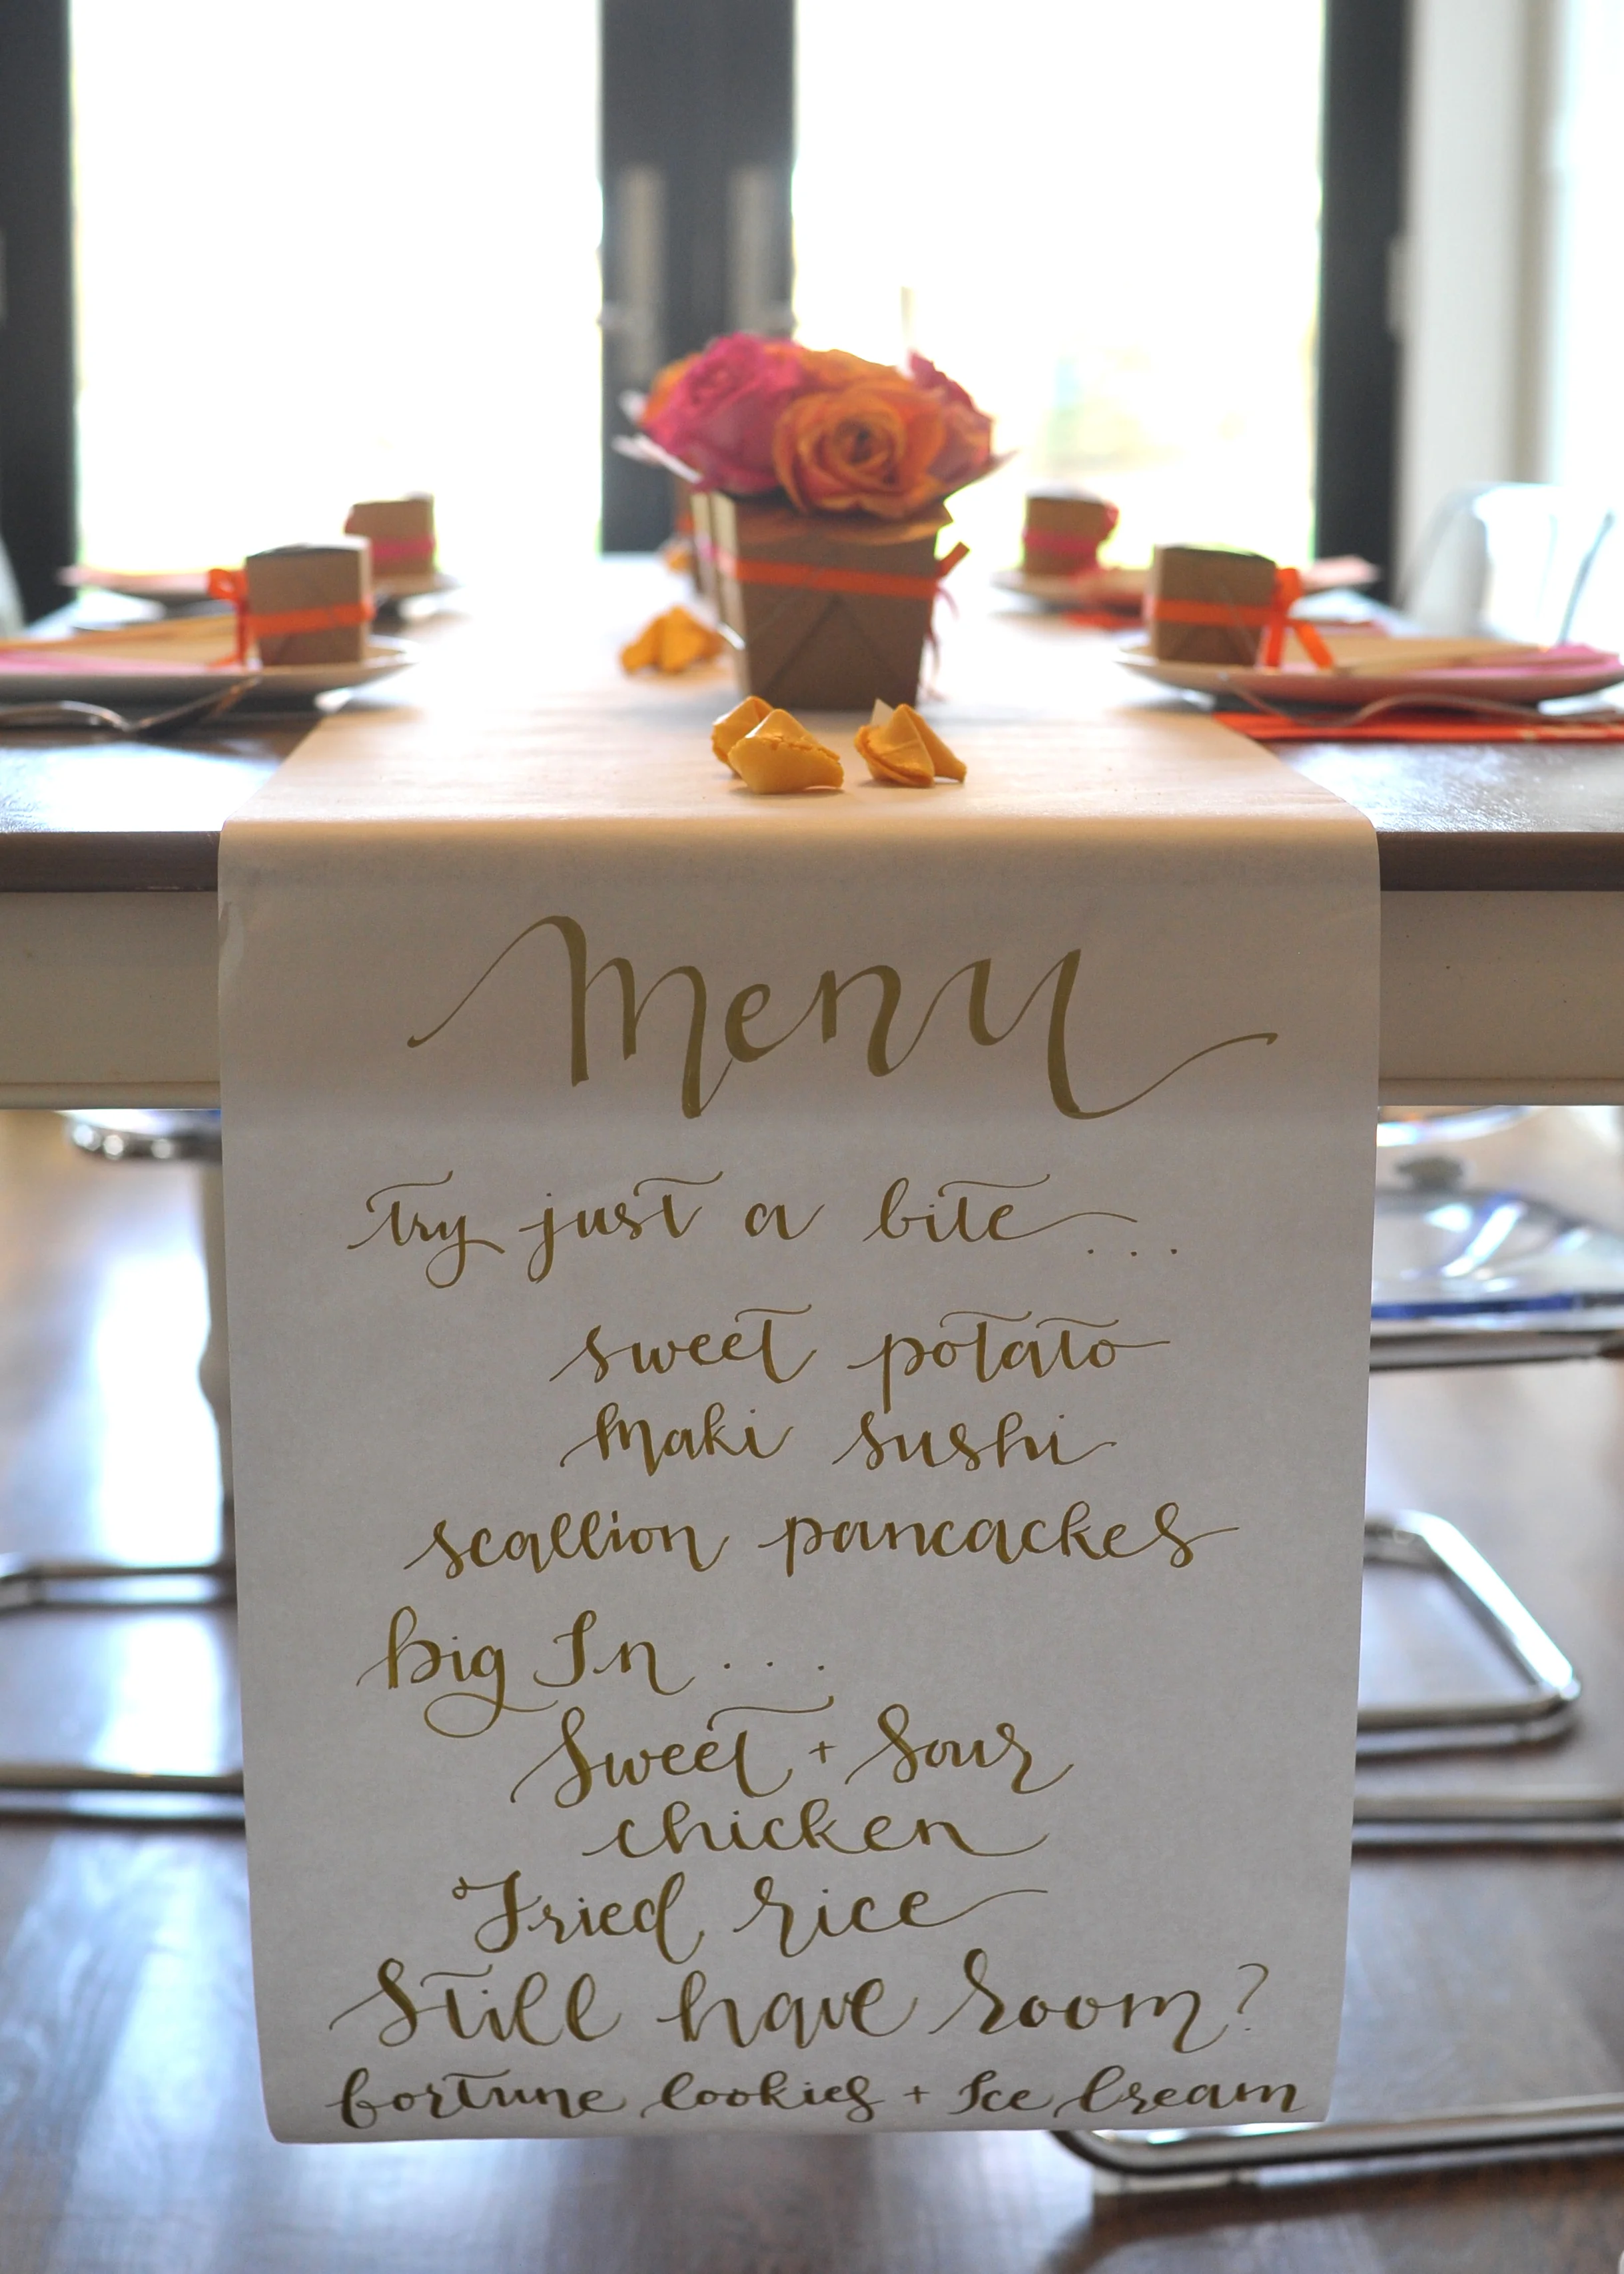 menu
try just a bite...
sweet potato
maki sushi
scallion pancackes
big In...
Sweet + Sour
chicken
Fried rice
Still have room?
fortune cookies + Ice Cream